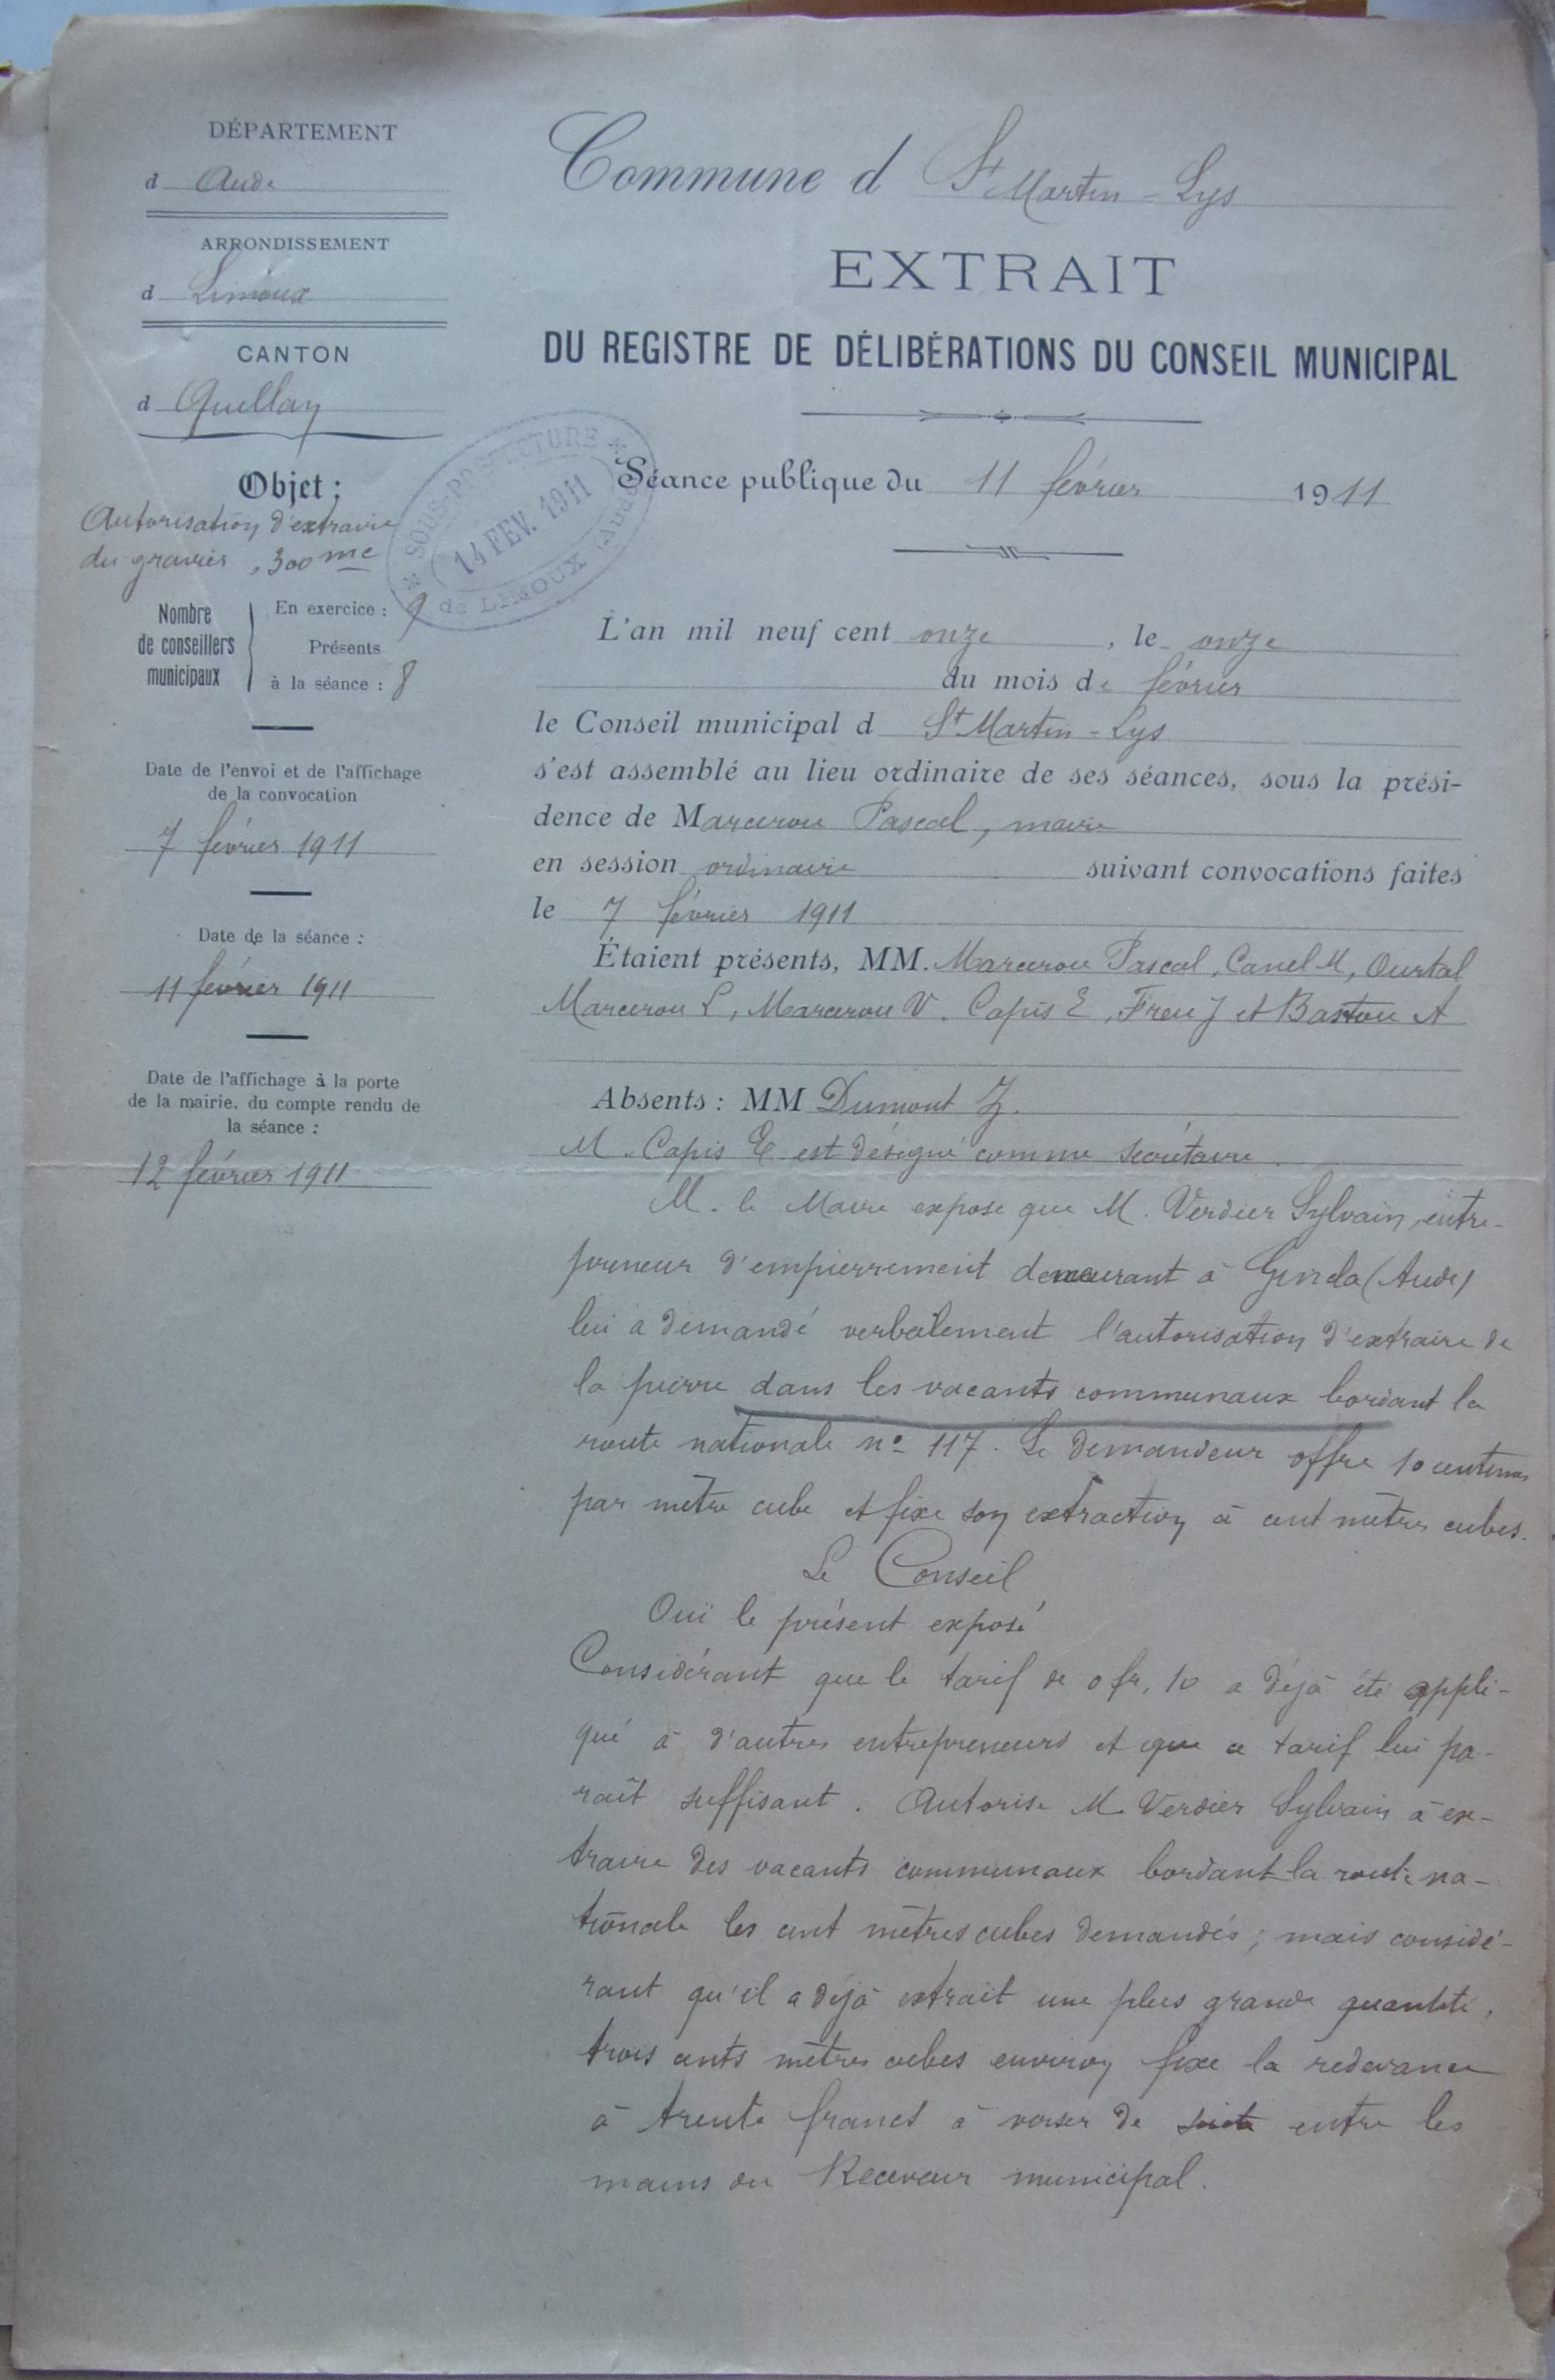 DÉPARTEMENT
d Aude
ARRONDISSEMENT
d Limoux
CANTON
d Quillan
Objet :
Autorisation d'extraire
du gravier, 300 mc
Nombre
de conseillers
municipaux
En exercice : 9
Présents
à la séance : 8
Date de l'envoi et de l'affichage
de la convocation
7 février 1911
Date de la séance :
11 février 1911
Date de l'affichage à la porte
de la mairie. du compte rendu de
la séance :
12 février 1911
SOUS-PRÉFECTURE
14 FEV. 1911
de LIMOUX (Aude)
Commune d St Martin-Lys
EXTRAIT
DU REGISTRE DE DÉLIBÉRATIONS DU CONSEIL MUNICIPAL
Séance publique du 11 février 1911
L'an mil neuf cent onze, le onze
du mois de février
le Conseil municipal d St Martin-Lys
s'est assemblé au lieu ordinaire de ses séances, sous la prési-
dence de Marcerou Pascal, maire
en session ordinaire suivant convocations faites
le 7 février 1911
Étaient présents, MM. Marcerou Pascal, Canel M, Ourtal
Marcerou L, Marcerou V. Capis E, Freu J et Bastou A
Absents : MM Dumont J.
M. Capis E est désigné comme secrétaire.
M. le Maire expose que M. Verdier Sylvain, entre-
preneur d'empierrement demeurant à Ginola (Aude)
lui a demandé verbalement l'autorisation d'extraire de
la pierre dans les vacants communaux bordant la
route nationale no 117. Le demandeur offre 10 centimes
par mètre cube et fixe son extraction à cent mètres cubes.
Le Conseil
Ouï le présent exposé
Considérant que le tarif de 0 fr, 10 a déjà été appli-
qué à d'autres entrepreneurs et que ce tarif lui pa-
raît suffisant. Autorise M Verdier Sylvain à ex-
traire des vacants communaux bordant la route na-
tionale les cent mètres cubes demandés ; mais considé-
rant qu'il a déjà extrait une plus grande quantité,
trois cents mètres cubes environ fixe la redevance
à trente francs à verser de suite entre les
mains du Receveur municipal.